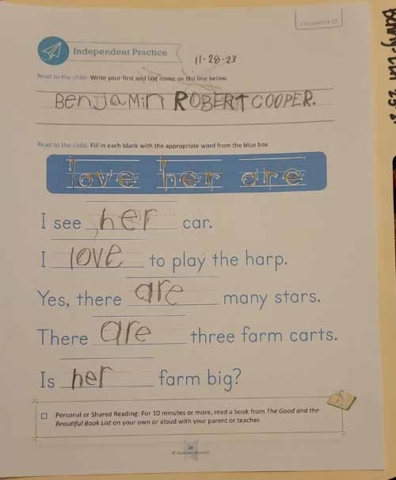 Independent Practice
11-28-23
Read to the child: Write your first and last name on the line below.
BenJaMin ROBERT COOPER.
Read to the child: Fill in each blank with the appropriate word from the blue box.
love her are
I see her car.
I love to play the harp.
Yes, there are many stars.
There are three farm carts.
Is her farm big?
Personal or Shared Reading: For 10 minutes or more, read a book from The Good and the
Beautiful Book List on your own or aloud with your parent or teacher.